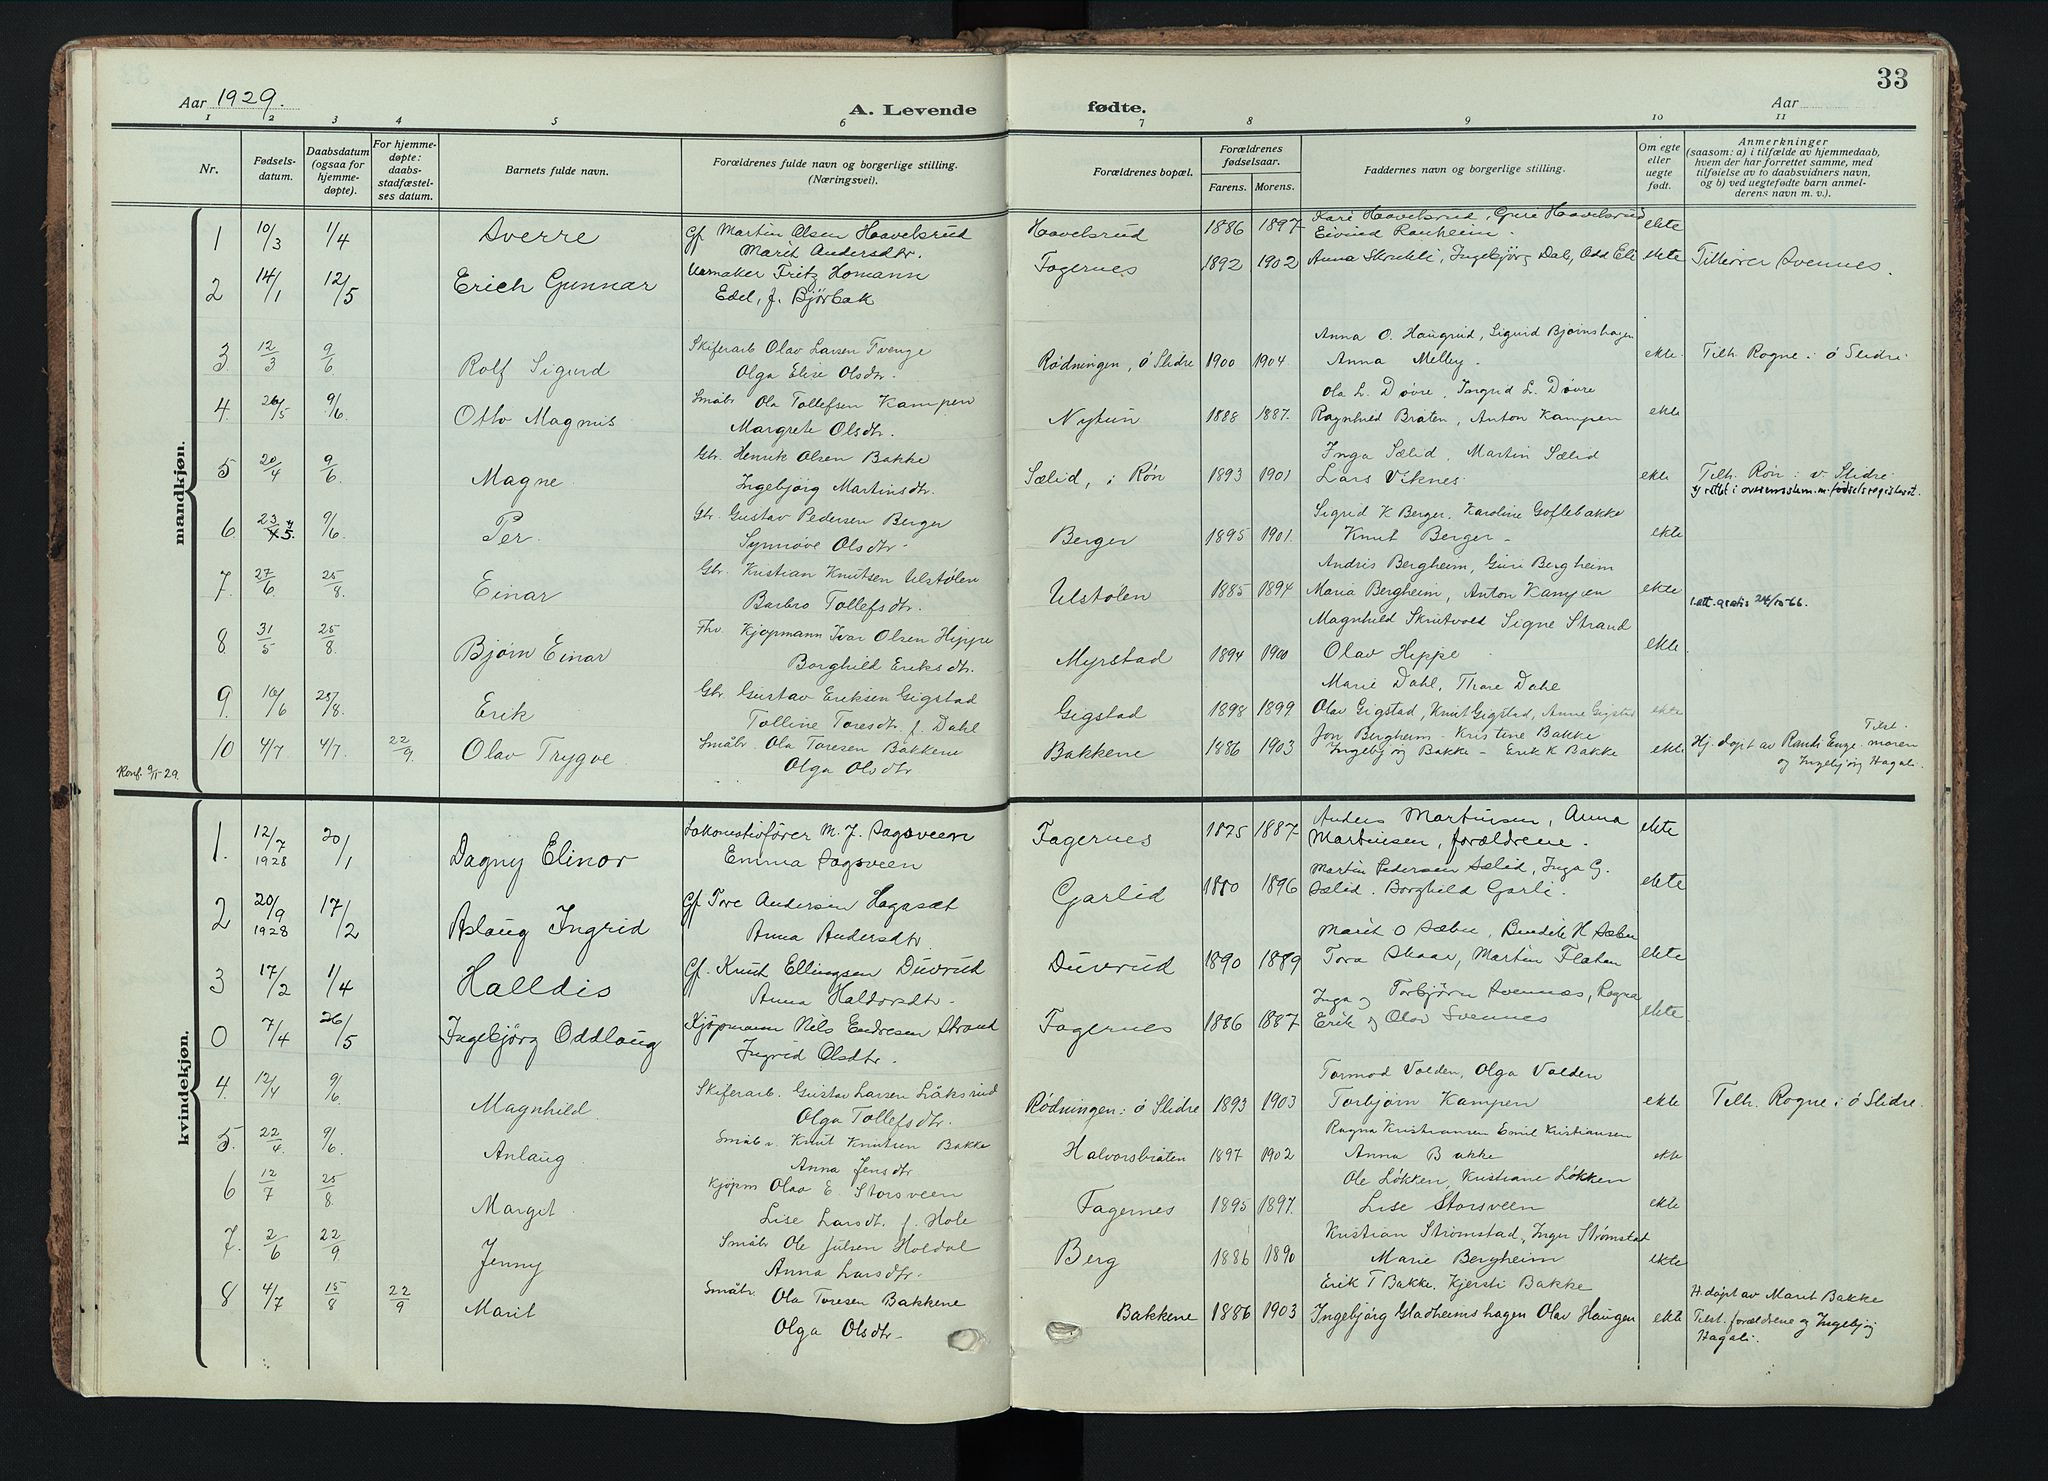 33
Aar 1929.
A. Levende fødte.
Aar
1 2 3 4 5 6 7 8 9 10 11
Nr.
Fødsels-
datum.
Daabsdatum
(ogsaa for
hjemme-
døpte).
For hjemme-
døpte:
daabs-
stadfæstel-
ses datum.
Barnets fulde navn.
Forældrenes fulde navn og borgerlige stilling.
(Næringsvei).
Forældrenes bopæl.
Forældrenes
fødselsaar.
Farens. Morens.
Faddernes navn og borgerlige stilling.
Om egte
eller
uegte
født.
Anmerkninger
(saasom: a) i tilfælde av hjemmedaab,
hvem der har forrettet samme, med
tilføielse av to daabsvidners navn,
og b) ved uegtefødte barn anmel-
derens navn m. v.).
mandkjøn.
Kari Haavelsrud, Guri Haavelsrud
1 10/3 1/4 Sverre Gf Martin Olsen Haavelsrud Haavelsrud 1886 1897 Eivind Ranheim. ekte
Marit Andersdtr.
2 14/1 12/5 Erich Gunnar Urmaker Fritz Homann Fagernes 1892 1902 Anna Skrukli, Ingebjørg Dal, Odd Eli ekte Tilhører Svennes.
Edel, f. Bjørbak
Anna O. Haugrud, Sigurd Bjørnshagen
3. 12/3 9/6 Rolf Sigurd Skiferarb Olav Larsen Tvenge Rødningen, ø Slidre 1900 1904. Anna Melby. ekte. Tilh. Rogne i ø Slidre.
Olga Elise Olsdtr.
Ola L. Døvre, Ingrid L. Døvre
4. 26/5 9/6 Otto Magnus Småbr Ola Tollefsen Kampen Nytun 1888 1887. Ragnhild Bråten, Anton Kampen ekte
Margrete Olsdtr.
Inga Sælid, Martin Sælid
5 20/4 9/6 Magne. Gbr. Henrik Olsen Bakke Sælid, i Røn 1893 1901 Lars Viknes. ekte Tilh. Røn i v. Slidre
Ingebjørg Martinsdtr.
rettet i overensstem. m. fødselsregisteret.
Sigrid K Berger, Karoline Goflebakke
6. 23/5. 9/6. Per. Gbr. Gustav Pedersen Berger Berger 1895 1901. Knut Berger - ekte
Synnøve Olsdtr.
Andris Bergheim, Guri Bergheim
7. 27/6. 25/8. Einar Gbr. Kristian Knutsen Ulstølen Ulstølen 1885 1894 Maria Bergheim, Anton Kampen ekte 1 att. gratis 24/10-66.
Barbro Tollefsdtr.
Magnhild Skrutvold Signe Strand
8 31/5 25/8. Bjørn Einar Fhv. Kjøpmann Ivar Olsen Hippe Myrstad 1894 1900 Olav Hippe. ekte
Borghild Eriksdtr.
Marie Dahl, Thore Dahl
9. 16/6 25/8. Erik Gbr. Gustav Eriksen Gigstad Gigstad 1898 1899 Olav Gigstad, Knut Gigstad, Anne Gigstad ekte
Tolline Toresdtr f. Dahl
Jon Bergheim - Kristine Bakke
10 4/7 4/7. 22/9. Olav Trygve Småbr. Ola Toresen Bakkene Bakkene 1886 1903 Ingebjørg Bakke - Erik K Bakke ekte Hj. døpt av Enge. Tilst. moren
Olga Olsdtr
og Ingebjørg Hagali.
Konf. 9/11-29.
kvindekjøn.
Anders Martinsen, Anna
1. 12/7 1928 20/1 Dagny Elinor Lokomotivfører M. J. Sagsveen Fagernes 1875 1887 Martinsen, forældrene. ekte
Emma Sagsveen
Martin Pedersen Sælid, Inga G.
2 20/9 1928 17/2 Aslaug Ingrid Gf Tore Andersen Hagasæt Garlid 1880 1896 Sælid. Borghild Garli. ekte
Anna Andersdtr.
Marit O Sæbu, Bendik H Sæbu
3 17/2 1/4 Halldis Gf. Knut Ellingsen Duvrud Duvrud 1890 1889 Tora Skaar, Martin Flaten ekte
Anna Haldorsdtr.
Inga og Torbjørn Svennes, Ragna
0 7/4 26/5 Ingebjørg Oddlaug Kjøpmann Nils Endresen Strand Fagernes 1886 1887 Erik og Olav Svennes ekte
Ingrid Olsdtr.
Tormod Volden, Olga Volden
4. 12/4 9/6. Magnhild Skiferarb. Gustav Larsen Løksrud Rødningen i ø Slidre 1893 1903 Torbjørn Kampen ekte Tilh. Rogne i ø Slidre.
Olga Tollefsdtr.
Ragna Kristiansen Emil Kristiansen
5. 22/4. 9/6. Anlaug Småbr. Knut Knutsen Bakke Halvorsbråten 1897 1902 Anna Bakke ekte
Anna Jensdtr
Ole Løkken, Kristiane Løkken
6 12/7 25/8 Marget. Kjøpm Olav E. Storsveen Fagernes 1895 1897. Lise Storsveen ekte
Lise Larsdt. f. Hole
Kristian Strømstad, Inger Strømstad
7. 2/6 22/9. Jenny Småbr Ole Julsen Holdal Berg 1886 1890 Marie Bergheim ekte
Anna Larsdtr.
Erik T Bakke. Kjersti Bakke
8 4/7 15/8 22/9 Marit Småbr. Ola Toresen Bakkene Bakkene 1886 1903 Ingebjørg Gladheimshagen Olav Haugen ekte H. døpt av Marit Bakke
Olga Olsdtr.
Tilst. forældrene og Ingebjørg
Hagali.